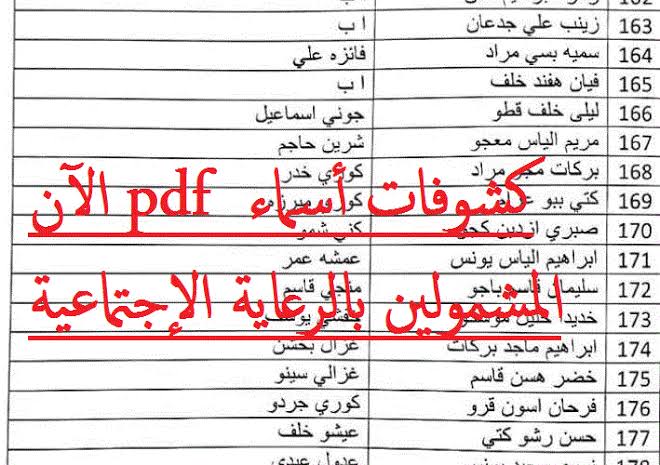 163 زينب علي جدعان ا ب
164 سميه بسي مراد فائزه علي
165 فيان هفند خلف ا ب
166 ليلى خلف قطو جوني اسماعيل
167 مريم الياس معجو شرين حاجم
168 بركات مجر مراد كوري خدر
كشوفات أسماء pdf الآن
169 كتي ببو
170 صبري كني شمو
171 ابراهيم الياس يونس عمشه عمر
172 سليمان قاسم باجو منجي قاسم
المشمولين بالرعاية الإجتماعية
173 خديدا خليل
174 ابراهيم ماجد بركات غزال بحسن
175 خضر هسن قاسم غزالي سينو
176 فرحان اسون قرو كوري جردو
177 حسن رشو كتي عيشو خلف
عدول عيدي